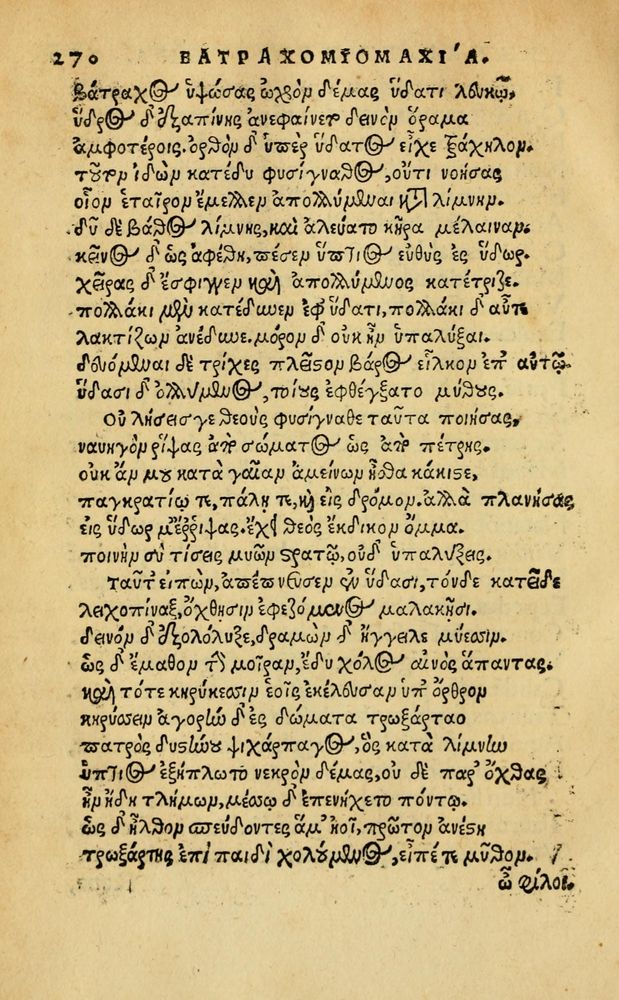 270 ΒΑΤΡΑΧΟΜΥΟΜΑΧΙ΄Α.
Βάτραχος ὑψώσας ὠχρὸν δέμας ὕδατι λευκῷ,
ὕδρος δ' ἐξαπίνης ἀνεφαίνετο δεινὸν ὅραμα
ἀμφοτέροις. ὀρθὸν δ' ὑπὲρ ὕδατος εἶχε τράχηλον.
τοῦτον ἰδὼν κατέδυ φυσίγναθος, οὔτι νοήσας
οἷον ἑταῖρον ἔμελλεν ἀπολλύμεναι κατὰ λίμνην.
δῦ δὲ βάθος λίμνης, καὶ ἀλεύατο κῆρα μέλαιναν.
κεῖνος δ' ὡς ἀφέθη, πέσεν ὕπτιος εὐθὺς ἐς ὕδωρ.
χεῖρας δ' ἔσφιγγεν καὶ ἀπολλύμενος κατέτριζε.
πολλάκι μὲν κατέδυνεν ἐφ' ὕδατι, πολλάκι δ' αὖτε
λακτίζων ἀνέδυνε. μόρον δ' οὐκ ἦν ὑπαλύξαι.
δευόμεναι δὲ τρίχες πλεῖσον βάρος εἷλκον ἐπ' αὐτῷ.
ὕδασι δ' ὀλλύμενος, τοίους ἐφθέγξατο μύθους.
Οὐ λήσεις γε θεοὺς φυσίγναθε ταῦτα ποιήσας,
ναυηγὸν ῥίψας ἀπὸ σώματος ὡς ἀπὸ πέτρης.
οὐκ ἄν μου κατὰ γαῖαν ἀμείνων ἦσθα κάκιστε,
παγκρατίῳ τε, πάλῃ τε, καὶ εἰς δρόμον. ἀλλὰ πλανήσας
εἰς ὕδωρ μ' ἔρριψας. ἔχει θεὸς ἔκδικον ὄμμα.
ποινὴν σὺ τίσεις μυῶν στρατῷ, οὐδ' ὑπαλύξεις.
Ταῦτ' εἰπὼν, ἀπέπνευσεν ἐν ὕδασι, τόνδε κατεῖδε
λειχοπίναξ, ὄχθῃσιν ἐφεζόμενος μαλακῇσι.
δεινὸν δ' ἐξολόλυξε, δραμὼν δ' ἤγγειλε μύεσσιν.
ὡς δ' ἔμαθον τὴν μοῖραν, ἔδυ χόλος αἰνὸς ἅπαντας.
καὶ τότε κηρύκεσσιν ἑοῖς ἐκέλευσαν ὑπ' ὄρθρον
κηρύσσειν ἀγορὴν δ' ἐς δώματα τρωξάρταο
πατρὸς δυστήνου ψιχάρπαγος, ὃς κατὰ λίμνην
ὕπτιος ἐξήπλωτο νεκρὸν δέμας, οὐ δὲ παρ' ὄχθας
ἦν ἤδη τλήμων, μέσσῳ δ' ἐπενήχετο πόντῳ.
ὡς δ' ἦλθον σπεύδοντες ἅμ' ἠοῖ, πρῶτον ἀνέστη
τρωξάρτης ἐπὶ παιδὶ χολούμενος, εἶπέ τε μῦθον.
ὦ φίλοι.